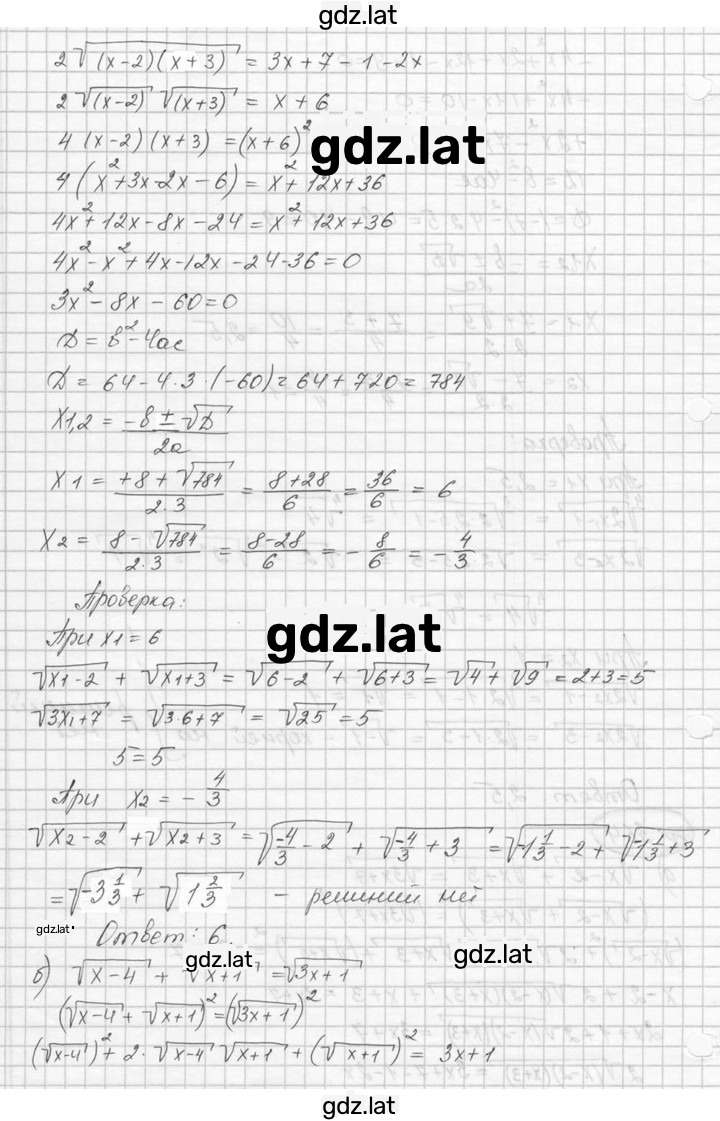 gdz.lat
2√((x-2)(x+3)) = 3x+7-1-2x
2√(x-2) √(x+3) = x+6
4(x-2)(x+3) = (x+6)²
gdz.lat
4(x²+3x-2x-6) = x²+12x+36
4x²+12x-8x-24 = x²+12x+36
4x²-x²+4x-12x-24-36=0
3x²-8x-60=0
D = b²-4ac
D = 64-4·3·(-60) = 64+720 = 784
x1,2 = (-b±√D)/2a
x1 = (+8+√784)/(2·3) = (8+28)/6 = 36/6 = 6
x2 = (8-√784)/(2·3) = (8-28)/6 = -8/6 = -4/3
Проверка:
gdz.lat
При x1=6
√(x1-2) + √(x1+3) = √(6-2) + √(6+3) = √4 + √9 = 2+3=5
√(3x1+7) = √(3·6+7) = √25 = 5
5=5
При x2 = -4/3
√(x2-2) + √(x2+3) = √(-4/3-2) + √(-4/3+3) = √(-1 1/3-2) + √(-1 1/3+3)
= √(-3 1/3) + √(1 2/3) - решиний нет
gdz.lat
Ответ: 6.
gdz.lat
gdz.lat
б) √(x-4) + √(x+1) = √(3x+1)
(√(x-4) + √(x+1))² = (√(3x+1))²
(√(x-4))² + 2·√(x-4) √(x+1) + (√(x+1))² = 3x+1
gdz.lat